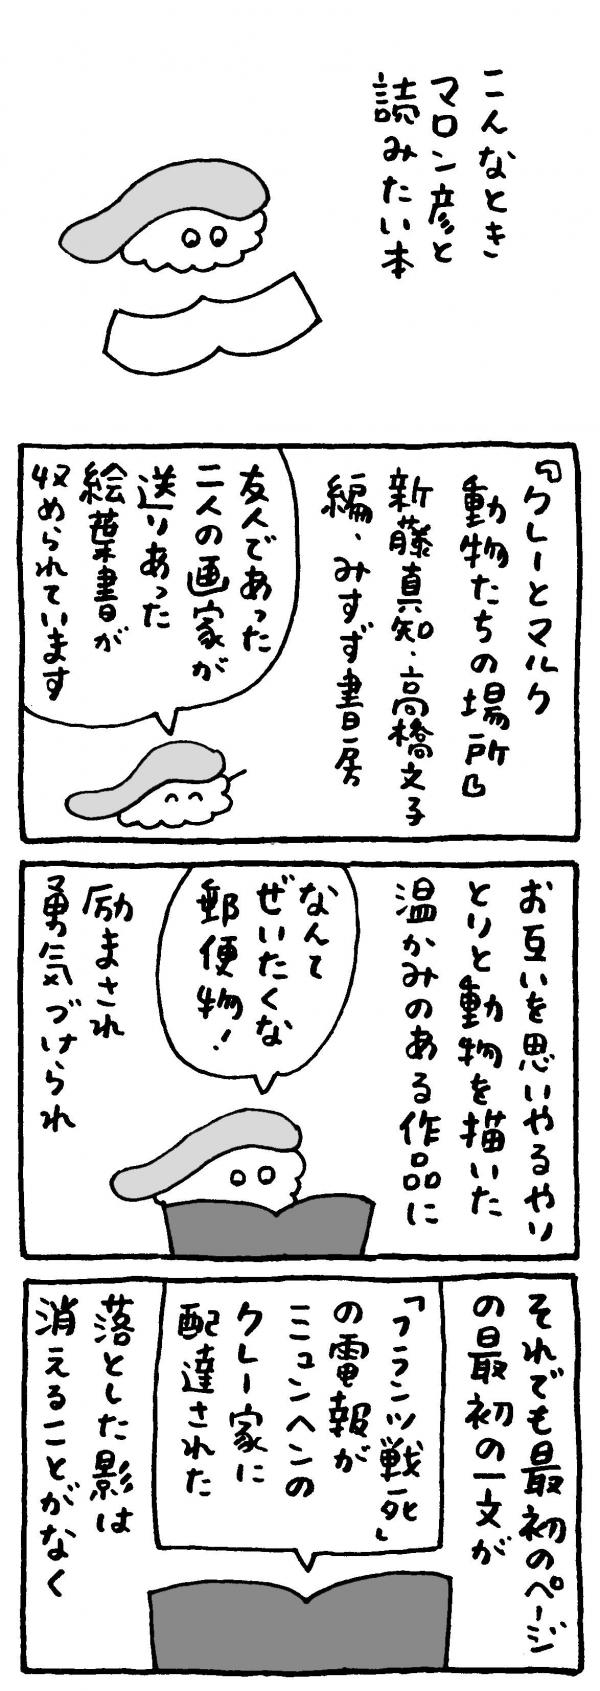 こんなとき
マロン彦と
読みたい本
『クレーとマルク
動物たちの場所』
新藤真知・高橋文子
編、みすず書房
友人であった
二人の画家が
送りあった
絵葉書が
収められています
お互いを思いやるやり
とりと動物を描いた
温かみのある作品に
なんて
ぜいたくな
郵便物！
励まされ
勇気づけられ
それでも最初のページ
の最初の一文が
「フランツ戦死」
の電報が
ミュンヘンの
クレー家に
配達された
落とした影は
消えることがなく